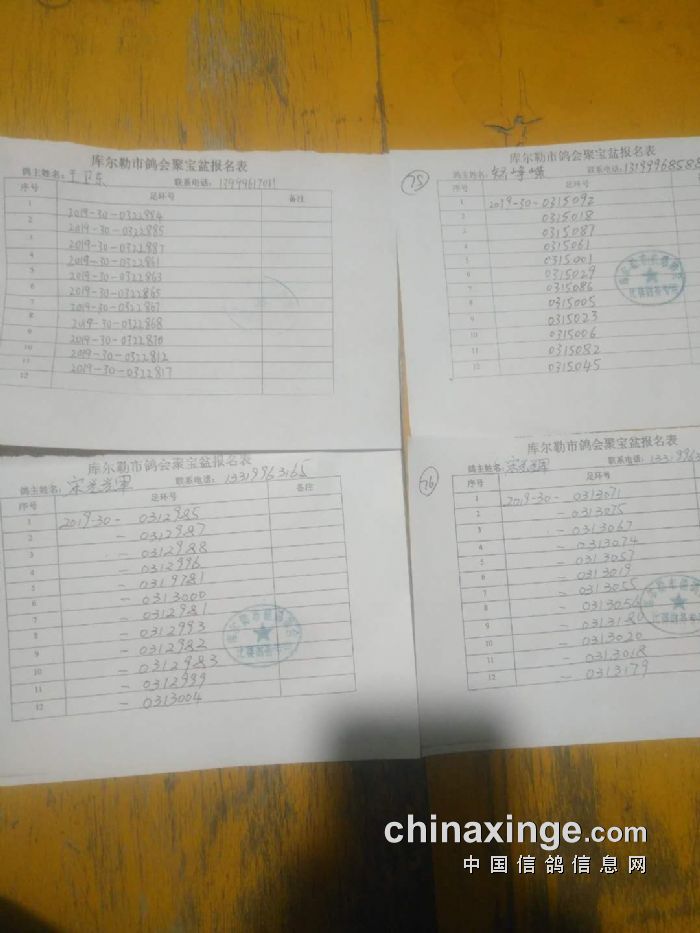 库尔勒市鸽会聚宝盆报名表
鸽主姓名: 王卫东 联系电话: 13999617011
序号 足环号 备注
1
2 2019-30-0322884
3 2019-30-0322885
4 2019-30-0322887
5 2019-30-0322861
6 2019-30-0322863
7 2019-30-0322865
8 2019-30-0322867
9 2019-30-0322868
10 2019-30-0322870
11 2019-30-0322812
12 2019-30-0322817
75
库尔勒市鸽会聚宝盆报名表
鸽主姓名: 联系电话: 13199968588
序号 足环号
1 2019-30-0315092
2 0315018
3 0315087
4 0315061
5 0315001
6 0315029
7 0315086
8 0315005
9 0315023
10 0315006
11 0315082
12 0315045
库尔勒市鸽会聚宝盆报名表
鸽主姓名: 联系电话: 13319963165
序号 足环号 备注
1 2019-30-0312985
2 -0312987
3 -0312988
4 -0312996
5 -0319781
6 -0313000
7 -0312981
8 -0312993
9 -0312982
10 -0312983
11 -0312999
12 -0313004
76
库尔勒市鸽会聚宝盆报名表
鸽主姓名: 联系电话: 13319963
序号 足环号
1 2019-30-0313071
2 -0313075
3 -0313067
4 -0313074
5 -0313057
6 -0313019
7 -0313055
8
9 -0313180
10 -0313020
11 -0313018
12 -0313179
chinaxinge.com
中国信鸽信息网